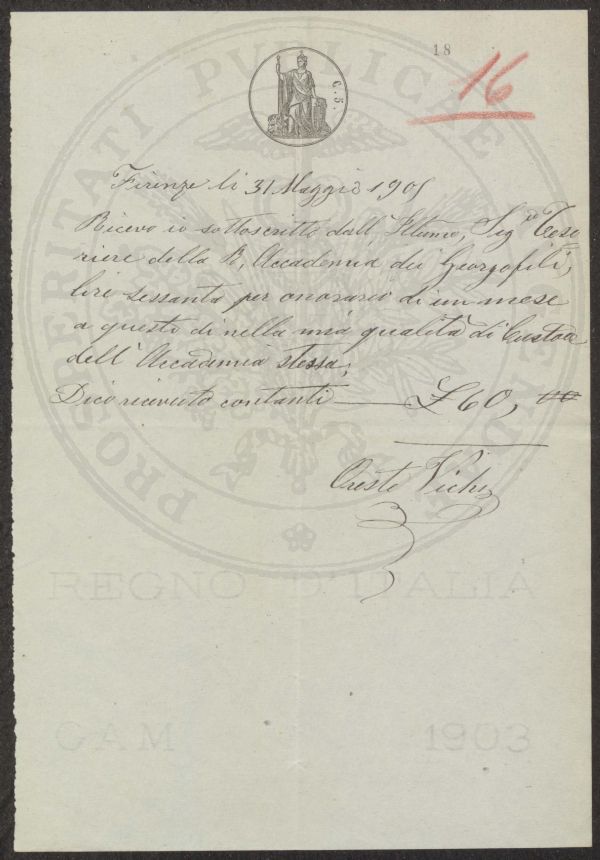 18
16
C. 5.
PROSPERITATI PUBLICAE AUGENDAE
Firenze li 31 Maggio 1905
Ricevo io sottoscritto dall, Illumo, Sigre Teso
riere della R, Accademia dei Georgofili,
lire sessanta per onorario di un mese
a questo di nella mia qualità di Custode
dell' Accademia stessa,
Dico ricevuto contanti — £ 60, 00
Oreste Vichi
REGNO D'ITALIA
CAM 1903